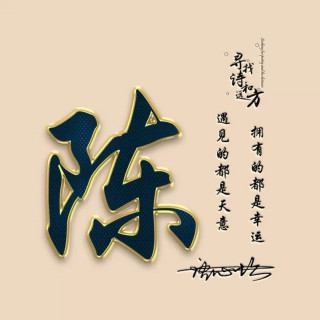 陈
寻找诗和远方
遇见的都是天意
拥有的都是幸运